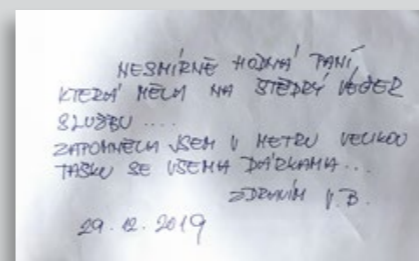 NESMÍRNĚ HODNÁ PANÍ,
KTERÁ MĚLA NA ŠTĚDRÝ VEČER
SLUŽBU ....
ZAPOMNĚLA JSEM V METRU VELIKOU
TAŠKU SE VŠEMA DÁRKAMA...
ZDRAVÍM V.B.
29.12.2019